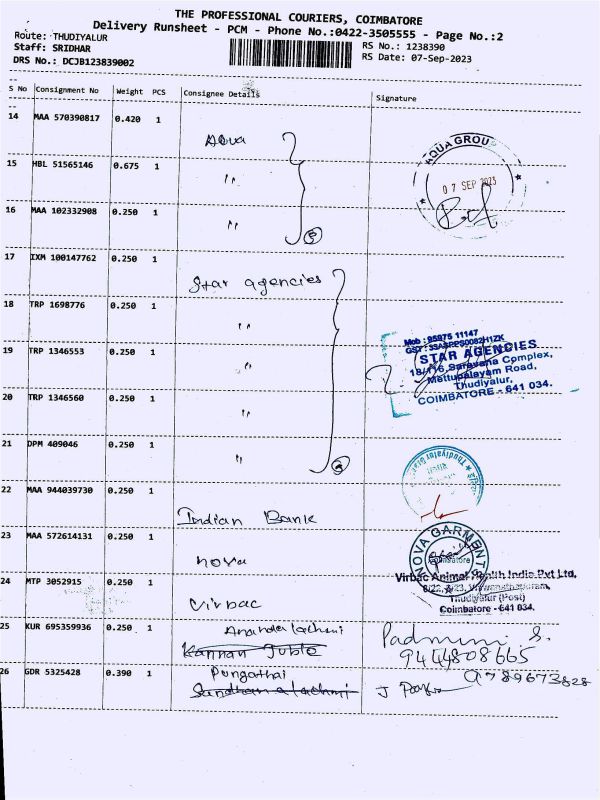 THE PROFESSIONAL COURIERS, COIMBATORE
Delivery Runsheet - PCM - Phone No.:0422-3505555 - Page No.:2
Route: THUDIYALUR
RS No.: 1238390
Staff: SRIDHAR
RS Date: 07-Sep-2023
DRS No.: DCJB123839002
S No Consignment No Weight PCS Consignee Details Signature
14 MAA 570390817 0.420 1
Aqua
AQUA GROUP
15 HBL 51565146 0.675 1
"
07 SEP 2023
16 MAA 102332908 0.250 1
"
17 IXM 100147762 0.250 1
Star agencies
18 TRP 1698776 0.250 1
"
Mob : 95975 11147
STAR AGENCIES
19 TRP 1346553 0.250 1
"
18/116, Saravana Complex,
Mettupalayam Road,
Thudiyalur,
COIMBATORE - 641 034.
20 TRP 1346560 0.250 1
"
21 DPM 409046 0.250 1
"
Thudiyalur
22 MAA 944039730 0.250 1
Indian Bank
23 MAA 572614131 0.250 1
nova
NOVA GARMENTS
Coimbatore
24 MTP 3052915 0.250 1
Virbac
Virbac Animal Health India Pvt Ltd,
Thudiyalur (Post)
Coimbatore - 641 034.
25 KUR 695359936 0.250 1
Kannan Juble
Padmini S.
9444808665
26 GDR 5325428 0.390 1
Pungathai
9789673828